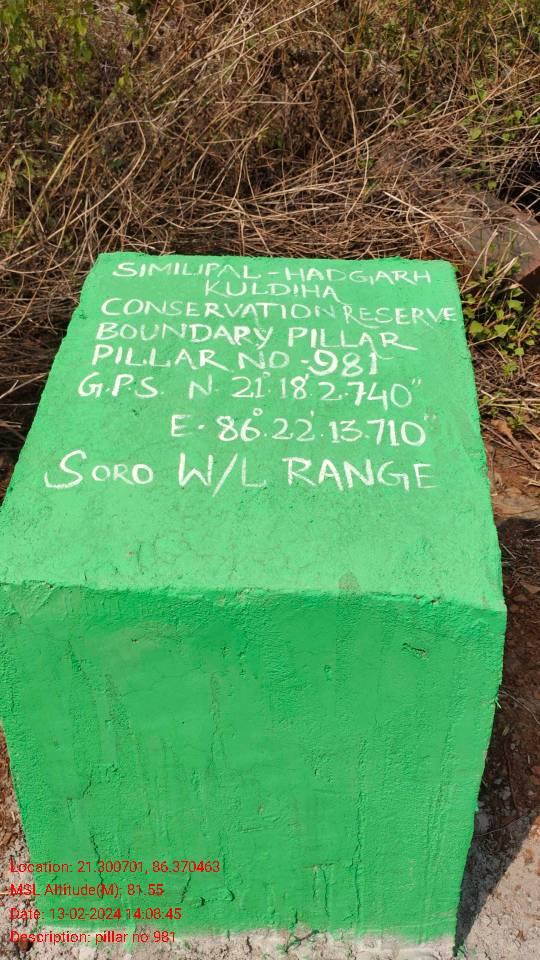 SIMILIPAL-HADGARH
KULDIHA
CONSERVATION RESERVE
BOUNDARY PILLAR
PILLAR NO-981
G.P.S. N. 21°.18'.2.740"
E. 86°.22'.13.710"
SORO W/L RANGE
Location: 21.300701, 86.370463
MSL Altitude(M): 81.55
Date: 13-02-2024 14:08:45
Description: pillar no 981